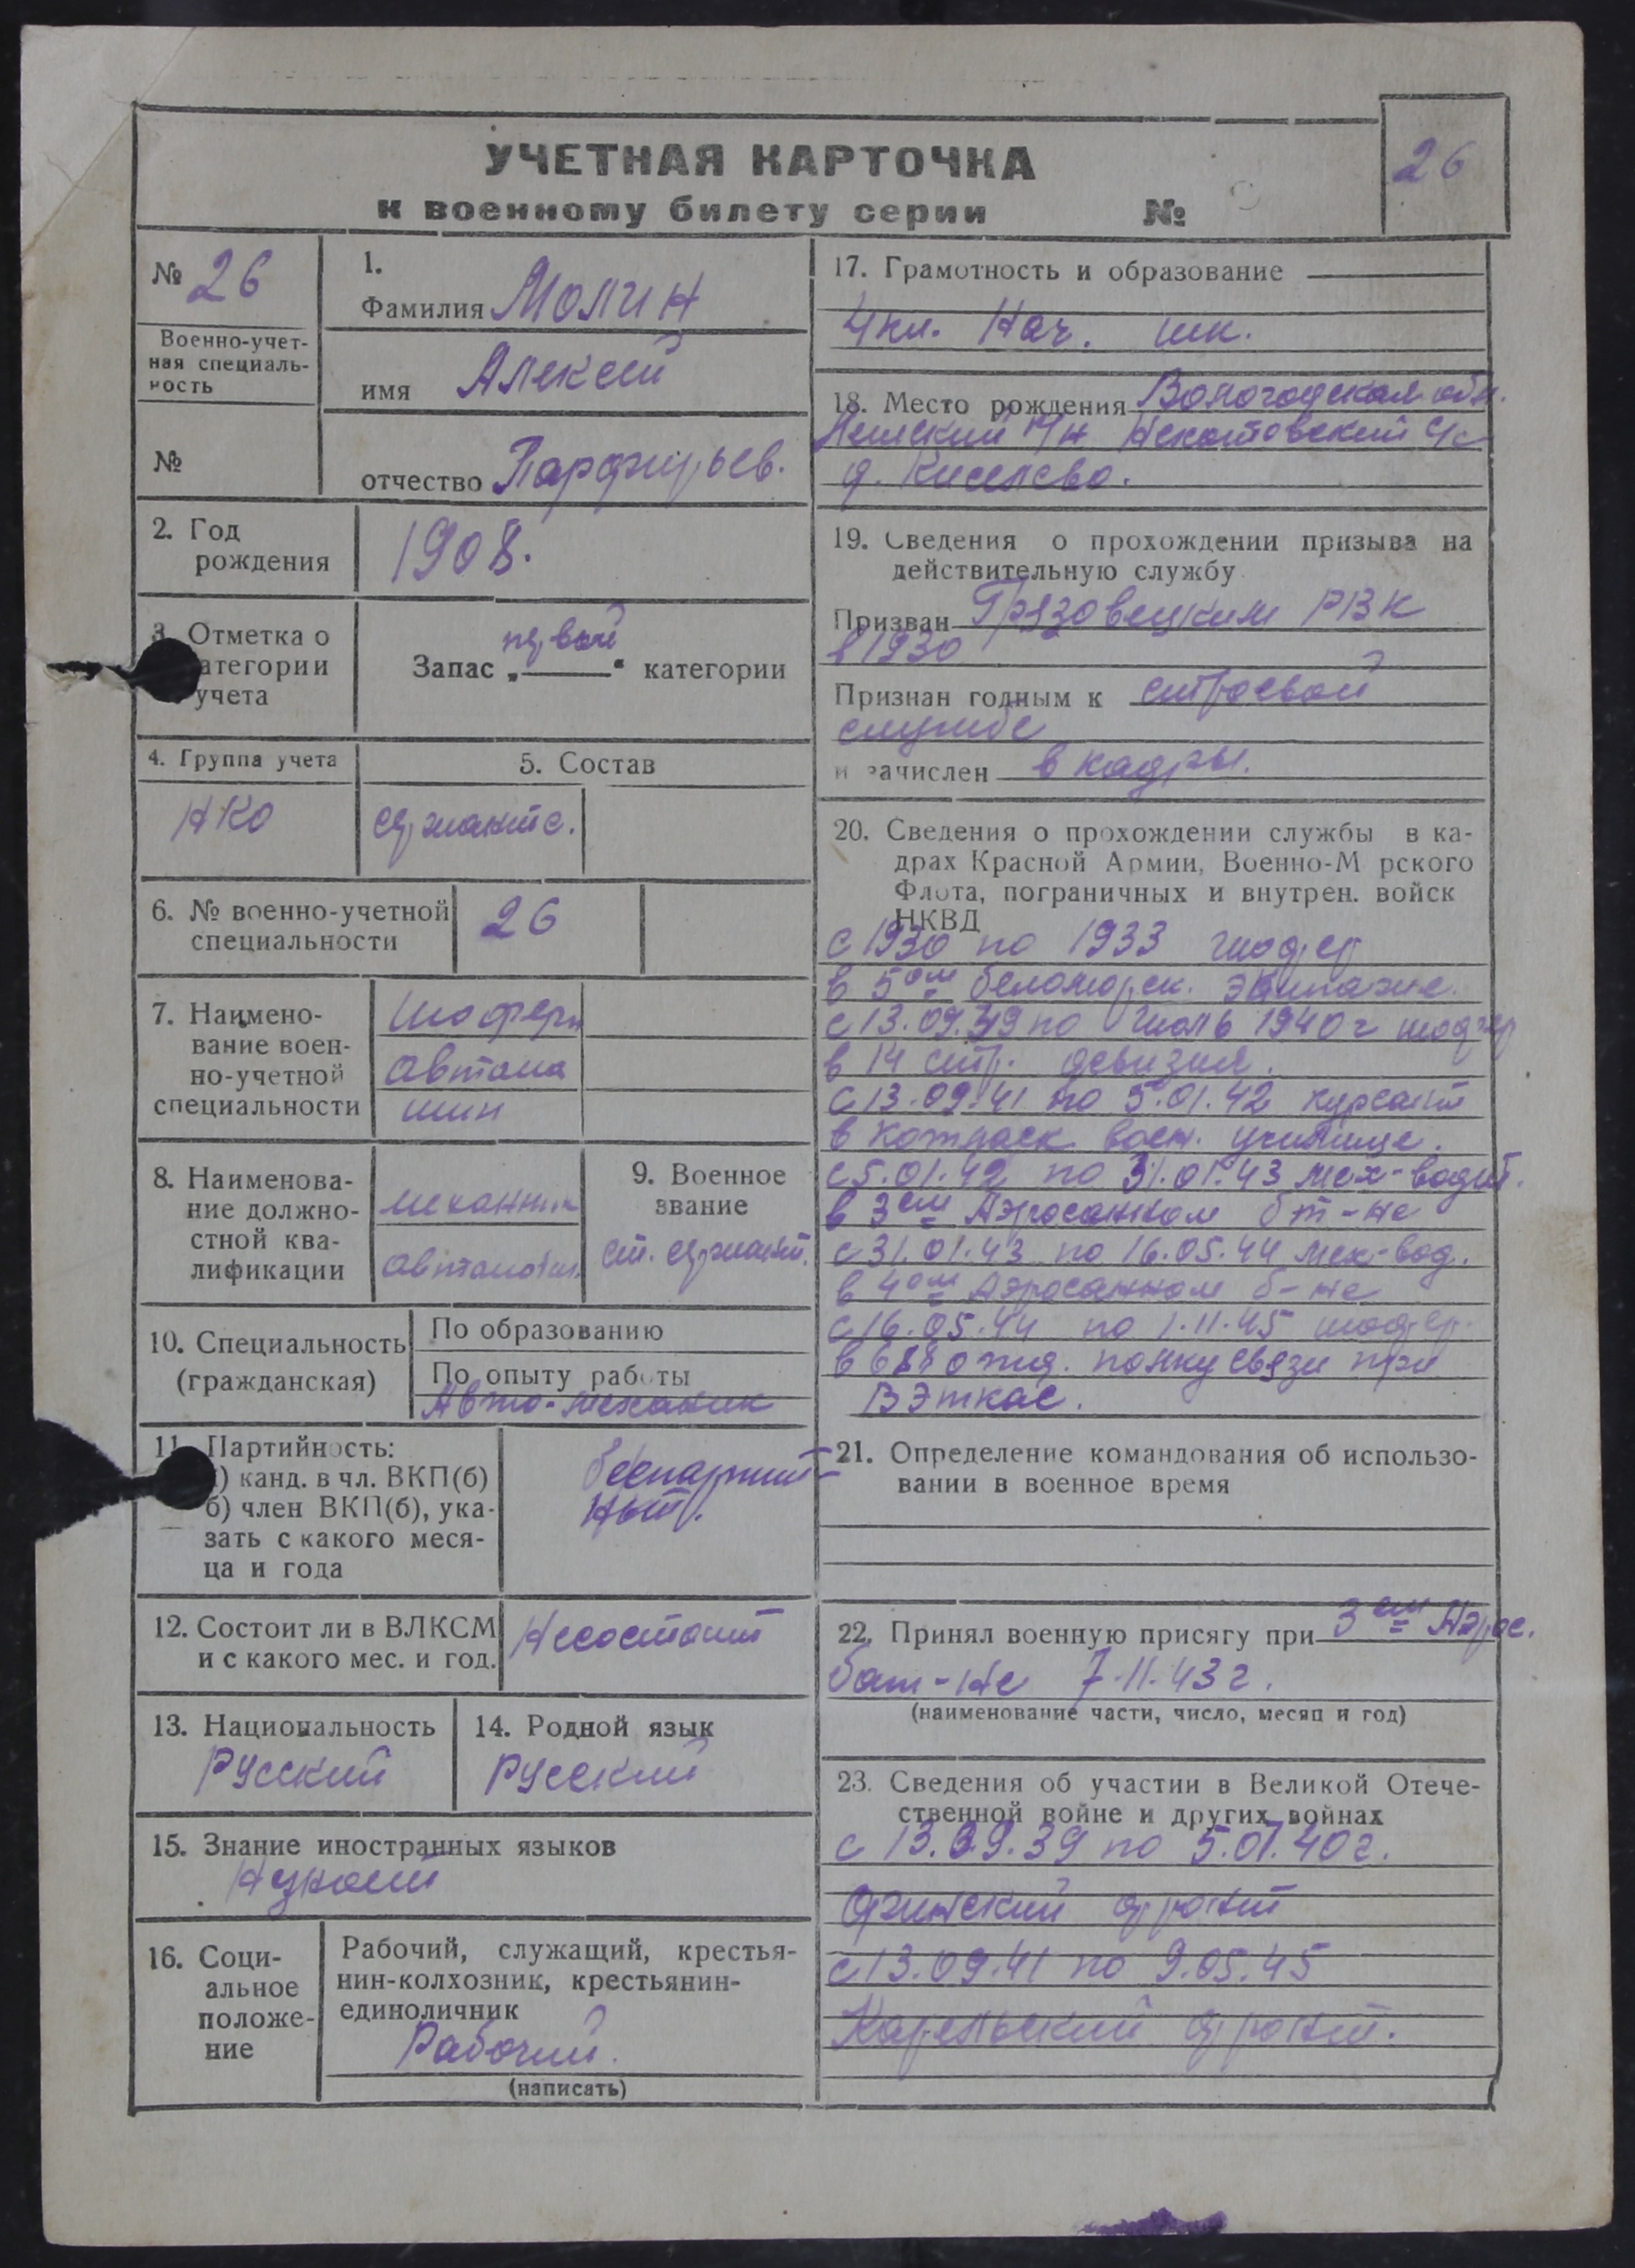 УЧЕТНАЯ КАРТОЧКА
к военному билету серии №
26
№ 26
Военно-учет-
ная специаль-
ность
№
1.
Фамилия Молин
имя Алексей
отчество Парфирьев.
2. Год
рождения
1908.
3. Отметка о
атегории
учета
первой
Запас „ “ категории
4. Группа учета
НКО
5. Состав
сержантс.
6. № военно-учетной
специальности
26
7. Наимено-
вание воен-
но-учетной
специальности
Шоферы
автома
шин
8. Наименова-
ние должно-
стной ква-
лификации
механик
автомобил.
9. Военное
звание
ст. сержант.
10. Специальность
(гражданская)
По образованию
По опыту работы
Авто-механик
11. Партийность:
) канд. в чл. ВКП(б)
б) член ВКП(б), ука-
зать с какого меся-
ца и года
беспартий-
ный.
12. Состоит ли в ВЛКСМ
и с какого мес. и год.
Несостоит
13. Национальность
Русский
14. Родной язык
Русский
15. Знание иностранных языков
Незнает
16. Соци-
альное
положе-
ние
Рабочий, служащий, крестья-
нин-колхозник, крестьянин-
единоличник
Рабочий.
(написать)
17. Грамотность и образование
4 кл. Нач. шк.
18. Место рождения Вологодская обл.
р/н с/с
д. Киселево.
19. Сведения о прохождении призыва на
действительную службу
Призван Грязовецким РВК
в 1930
Признан годным к строевой
службе
и зачислен в кадры.
20. Сведения о прохождении службы в ка-
драх Красной Армии, Военно-М рского
Флота, пограничных и внутрен. войск
НКВД
с 1930 по 1933 шофер
в 5ом беломорск. экипаже.
с 13.09.39 по Июль 1940 г шофер
в 14 стр. девизия.
с 13.09.41 по 5.01.42 курсант
в Котласк воен. училище.
с 5.01.42 по 31.01.43 мех-водит.
в 3ем Аэросанном бт-не
с 31.01.43 по 16.05.44 мех-вод.
в 4ом Аэросанном б-не
с 16.05.44 по 1.11.45 шофер.
в 688 полку связи при
21. Определение командования об использо-
вании в военное время
22. Принял военную присягу при 3ем Аэрос.
бат-не 7.11.43 г.
(наименование части, число, месяц и год)
23. Сведения об участии в Великой Отече-
ственной войне и других войнах
с 13.09.39 по 5.07.40 г.
Финский фронт
с 13.09.41 по 9.05.45
Карельский фронт.